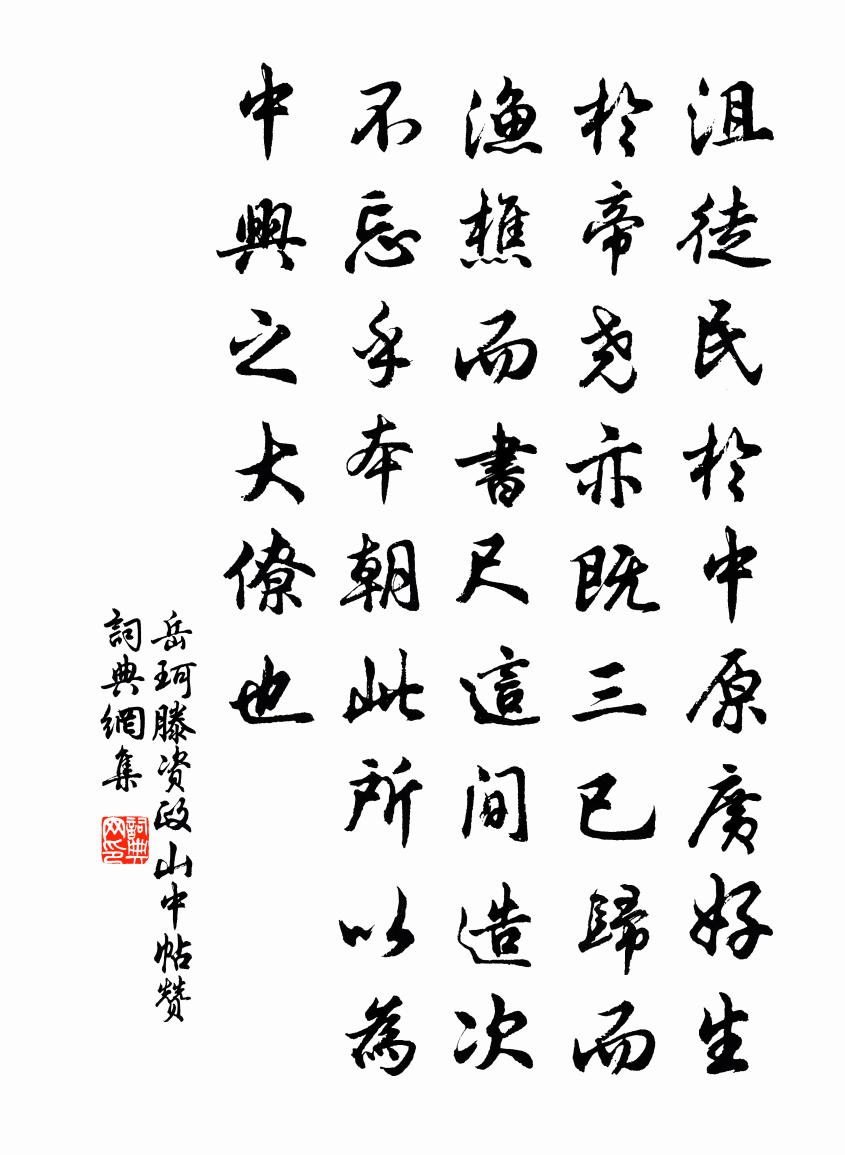 沮徒民於中原廣好生
於帝堯亦既三已歸而
漁樵而書尺這間造次
不忘乎本朝此所以為
中興之大僚也
岳珂滕資政山中帖贊
詞典網集
詞典
网印